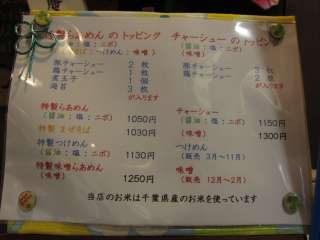 製らあめん の トッピング
(醤油:塩:ニボ)
つけめん : 味噌)
豚チャーシュー 2 枚
鶏チャーシュー 1 枚
煮玉子 1 個
海苔 3 枚
が入ります
特製らあめん 1050円
(醤油:塩:ニボ)
特製 まぜそば 1030円
特製つけめん 1130円
(醤油:塩:ニボ)
特製味噌らあめん 1250円
チャーシュー の トッピング
(醤油:塩:ニボ)
(味噌)
豚チャーシュー 3 枚
鶏チャーシュー 2 枚
が入ります
チャーシュー
(醤油:塩:ニボ) 1150円
(味噌) 1300円
つけめん
(販売 3月~11月)
味噌
(販売 12月~2月)
当店のお米は千葉県産のお米を使っています